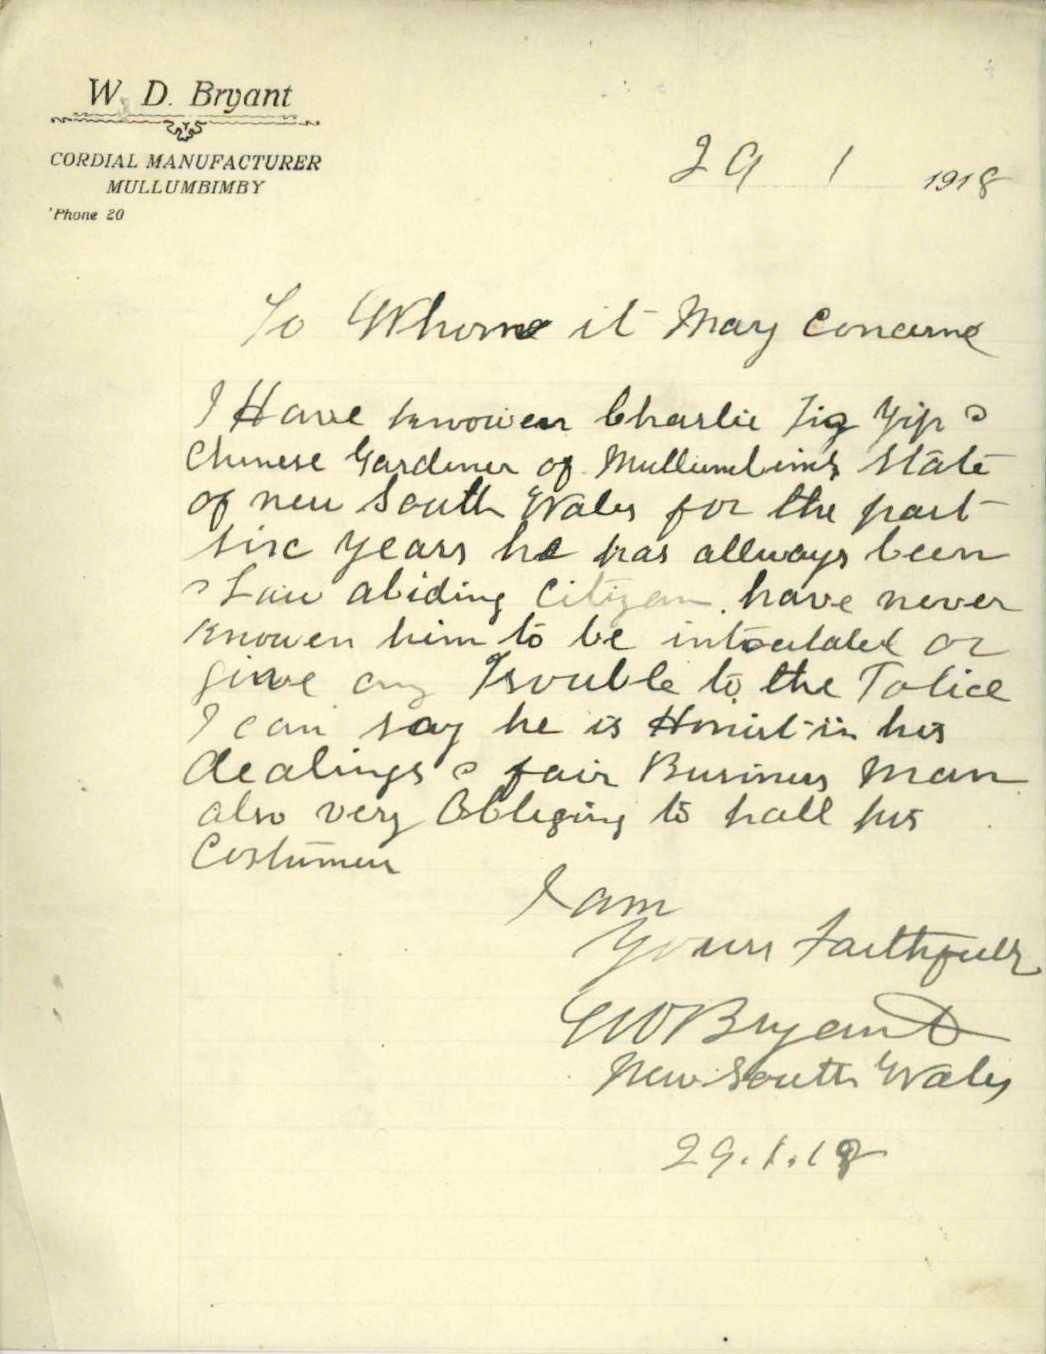 W. D. Bryant
CORDIAL MANUFACTURER
MULLUMBIMBY
'Phone 20
29 1 1918
To Whome it May Concerne
I Have knowen Charlie Jig Yip a
Chinese Gardener of Mullumbimby State
of new South Wales for the past
sixc years he has allways been
a Law abiding Citizen have never
knowen him to be
or
give any Trouble to the Police
I can say he is Honist in his
dealings a fair Business Man
also very Obliging to hall his
Costumers
I am
Yours Faithfully
Bryant
New South Wales
29.1.18